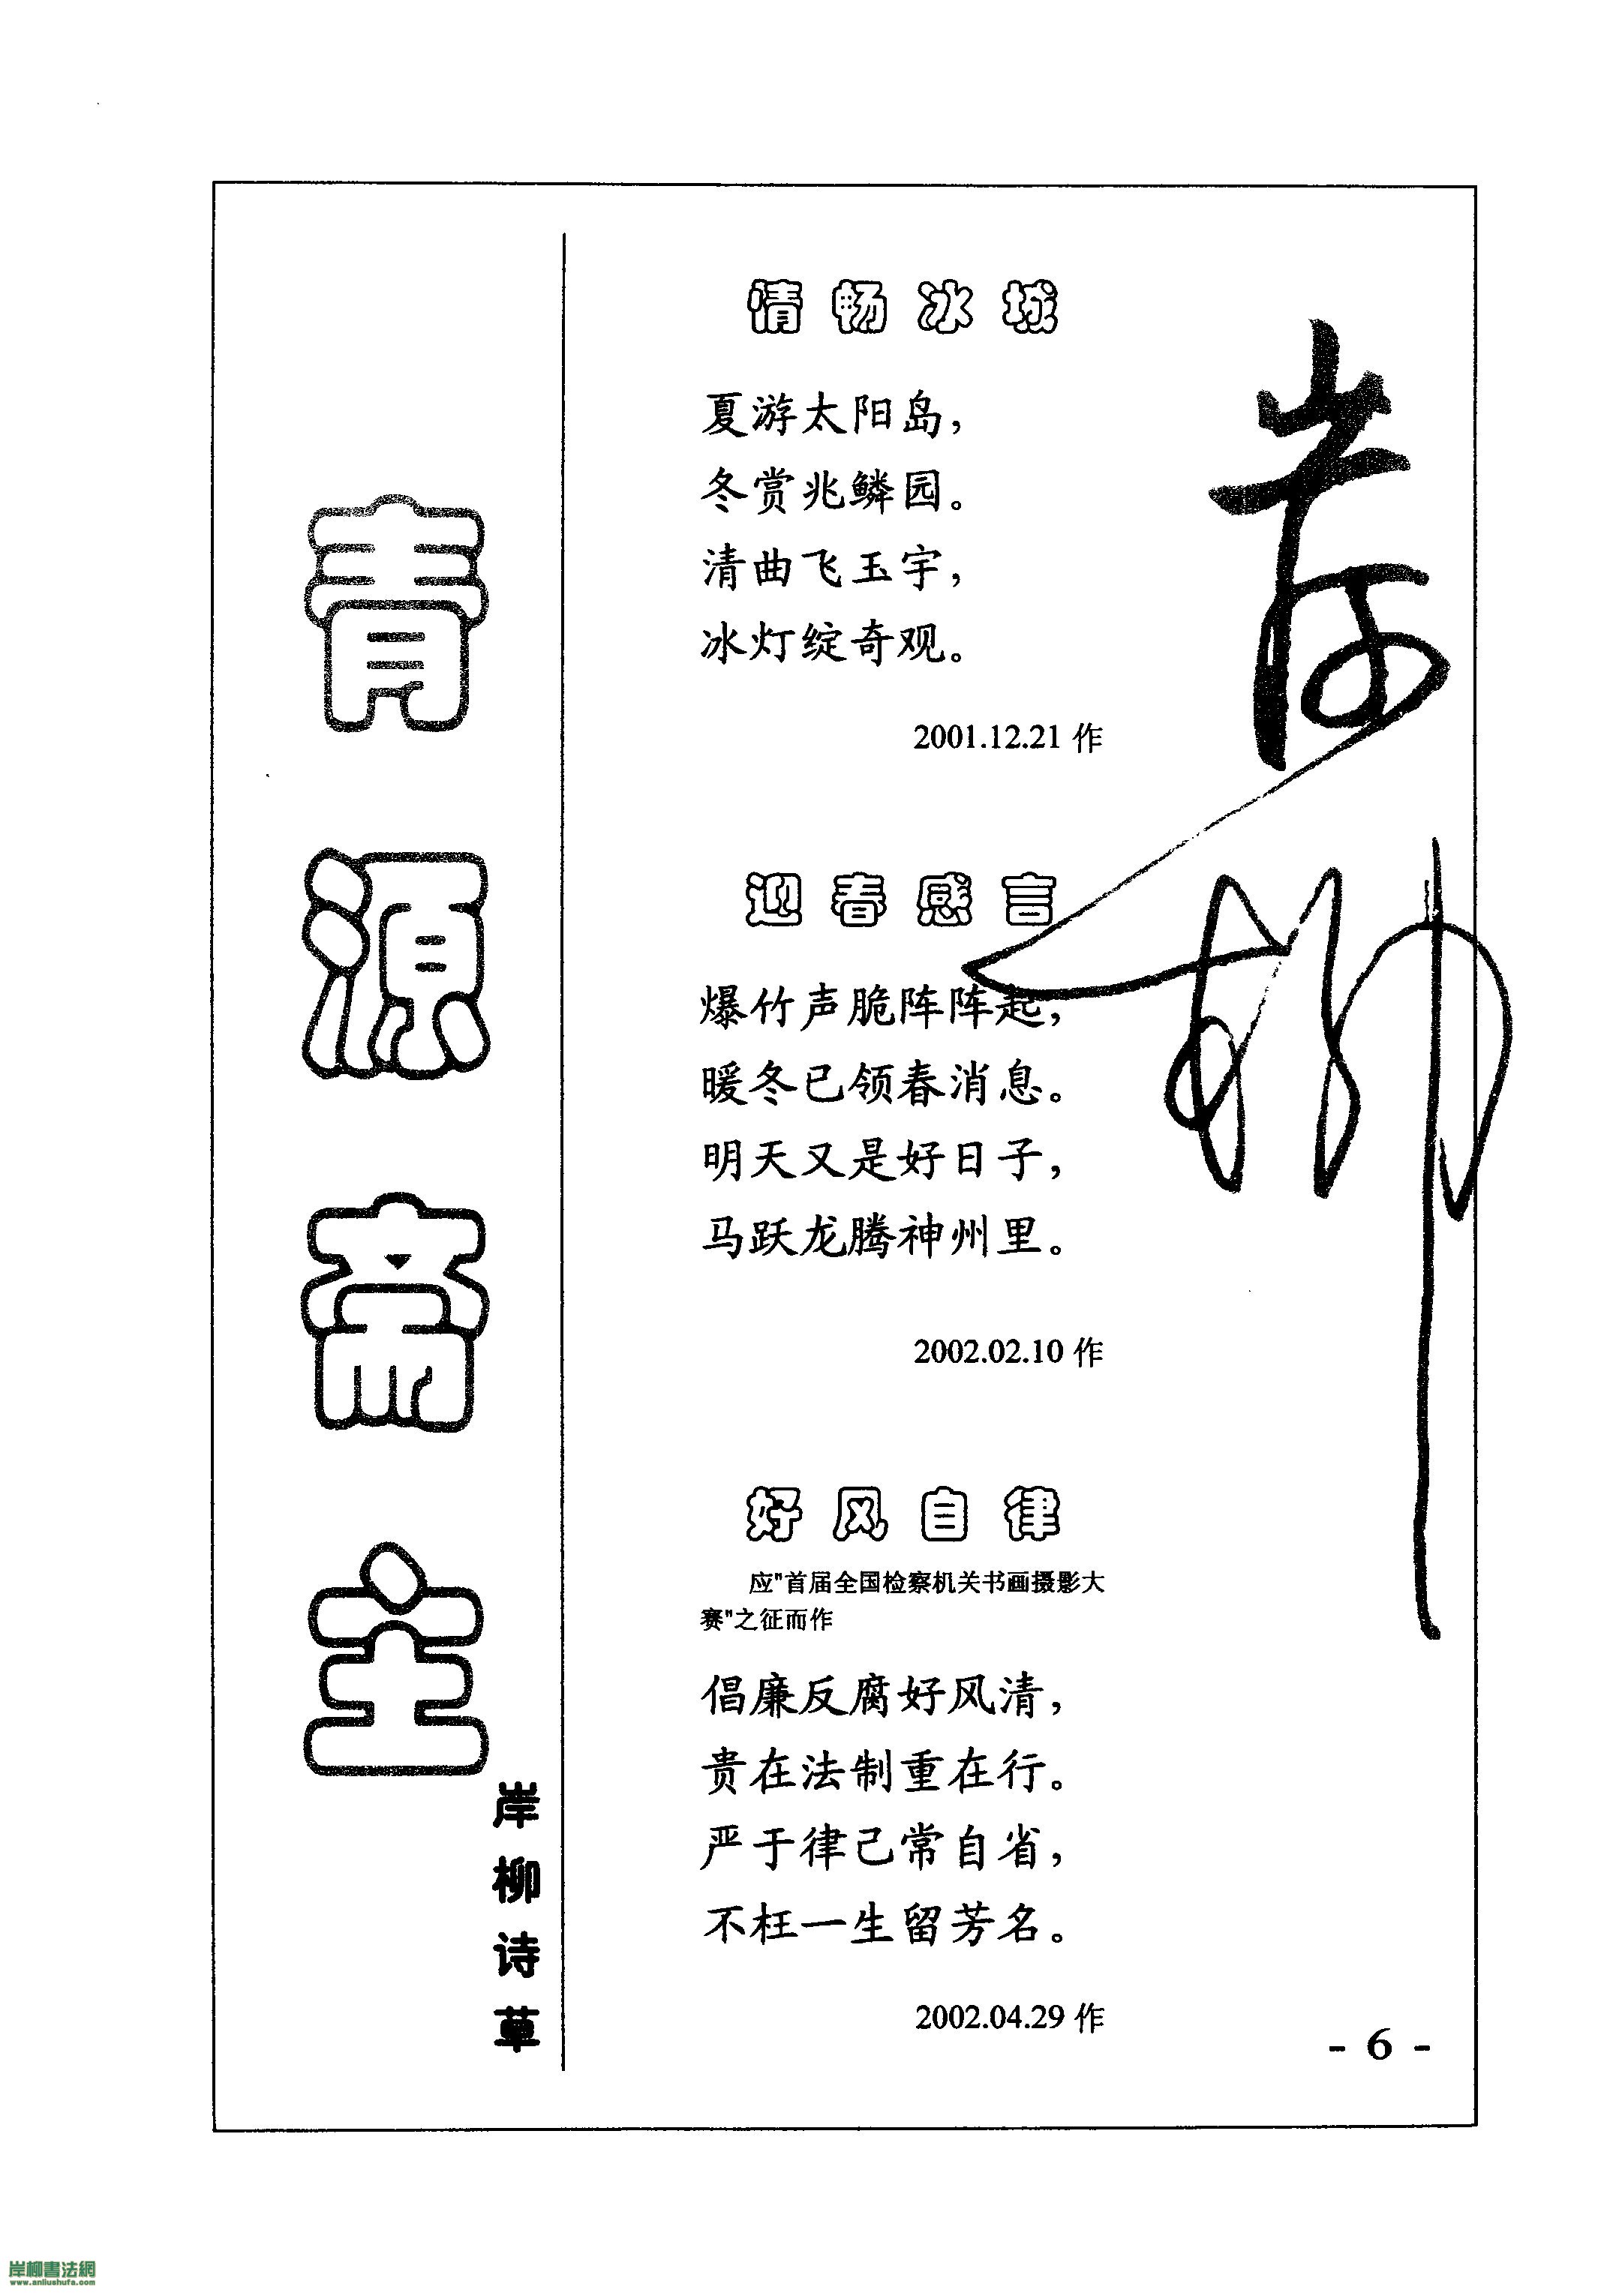 青源斋主
岸柳诗草
情畅冰城
夏游太阳岛，
冬赏兆鳞园。
清曲飞玉宇，
冰灯绽奇观。
2001.12.21 作
迎春感言
爆竹声脆阵阵起，
暖冬已领春消息。
明天又是好日子，
马跃龙腾神州里。
2002.02.10 作
好风自律
应"首届全国检察机关书画摄影大
赛"之征而作
倡廉反腐好风清，
贵在法制重在行。
严于律己常自省，
不枉一生留芳名。
2002.04.29 作
- 6 -
岸柳
岸柳書法網
www.anliushufa.com